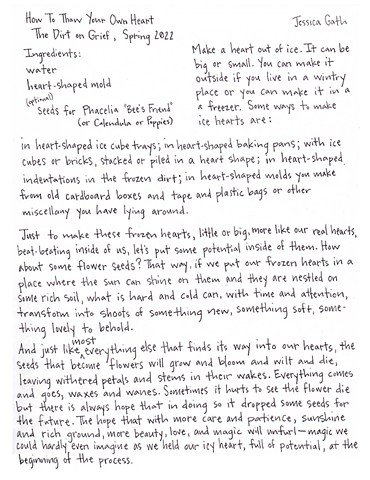 How To Thaw Your Own Heart
Jessica Gath
The Dirt on Grief, Spring 2022
Ingredients:
water
heart-shaped mold
(optional)
Seeds for Phacelia "Bee's Friend"
(or Calendula or Poppies)
Make a heart out of ice. It can be
big or small. You can make it
outside if you live in a wintry
place or you can make it in
a freezer. Some ways to make
ice hearts are:
in heart-shaped ice cube trays; in heart-shaped baking pans; with ice
cubes or bricks, stacked or piled in a heart shape; in heart-shaped
indentations in the frozen dirt; in heart-shaped molds you make
from old cardboard boxes and tape and plastic bags or other
miscellany you have lying around.
Just to make these frozen hearts, little or big, more like our real hearts,
beat-beating inside of us, let's put some potential inside of them. How
about some flower seeds? That way, if we put our frozen hearts in a
place where the sun can shine on them and they are nestled on
some rich soil, what is hard and cold can, with time and attention,
transform into shoots of something new, something soft, some-
thing lovely to behold.
And just like most everything else that finds its way into our hearts, the
seeds that become flowers will grow and bloom and wilt and die,
leaving withered petals and stems in their wakes. Everything comes
and goes, waxes and wanes. Sometimes it hurts to see the flower die
but there is always hope that in doing so it dropped some seeds for
the future. The hope that with more care and patience, sunshine
and rich ground, more beauty, love, and magic will unfurl—magic we
could hardly even imagine as we held our icy heart, full of potential, at the
beginning of the process.